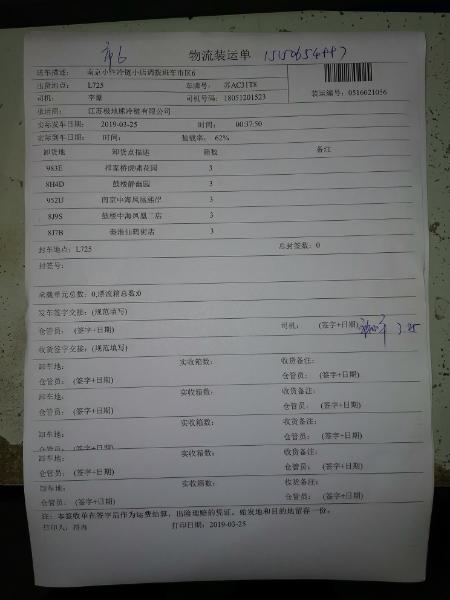 市6 物流装运单
班车描述: 南京小件冷链小店调拨班车市区6
出货地点: L725 车牌号: 苏AC31T8
司机: 李 司机号码: 18051201523 装运编号: 0516021056
承运商: 江苏极地熊冷链有限公司
实际发车日期: 2019-03-25 时间: 00:37:50
实际到车日期: 时间: 装载率: 62%
卸货地 卸货点描述 箱数 备注
983E 花园 3
8H4D 鼓楼静 园 3
952U 南京中海凤凰熙岸 3
8J9S 鼓楼中海凤凰二店 3
8J7B 秦淮仙鹤街店 3
封车地点: L725 总封签数: 0
封签号:
承载单元总数: 0,漂流箱总数:0
发车签字交接: (规范填写)
仓管员: (签字+日期) 司机: (签字+日期) 3.25
收货签字交接: (规范填写)
卸车地: 实收箱数: 收货备注:
仓管员: (签字+日期) 仓管员: (签字+日期)
卸车地: 实收箱数: 收货备注:
仓管员: (签字+日期) 仓管员: (签字+日期)
卸车地: 实收箱数: 收货备注:
仓管员: (签字+日期) 仓管员: (签字+日期)
卸车地: 实收箱数: 收货备注:
仓管员: (签字+日期) 仓管员: (签字+日期)
卸车地: 实收箱数: 收货备注:
仓管员: (签字+日期) 仓管员: (签字+日期)
注: 本签收单在签字后作为运费结算, 出险理赔的凭证, 始发地和目的地留存一份。
打印人: 打印日期: 2019-03-25